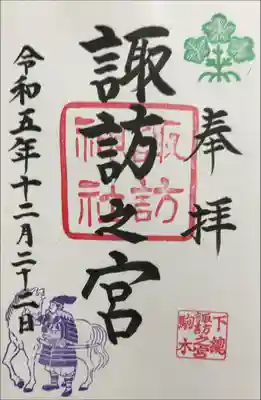 奉拝
諏訪之宮
諏訪神社
令和五年十二月二十二日
下總
諏訪之宮
駒木